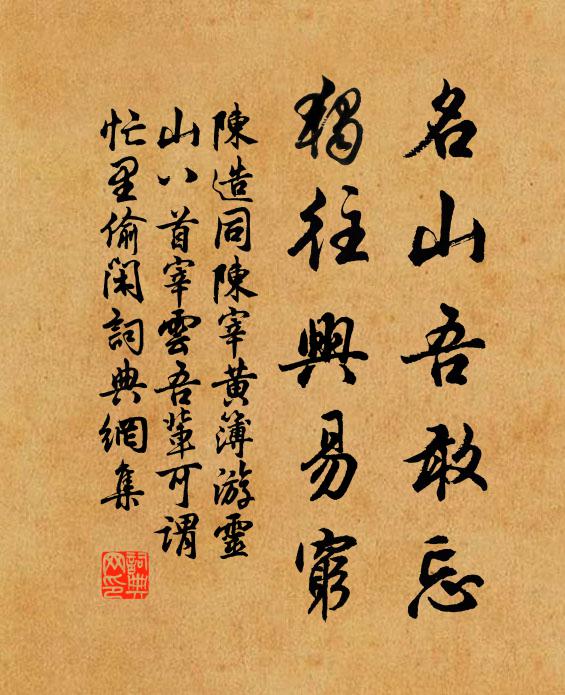 名山吾敢忘
獨往興易窮
陳造同陳宰黃簿游靈
山八首宰雲吾輩可謂
忙里偷閑詞典網集
詞典
网印